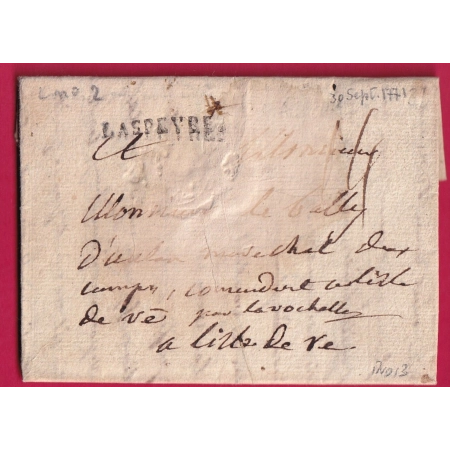 L no 2
30 Sept. 1771
LASPEYRES
Monsieur
Monsieur le Bally
D'aulan marechal des
camps, comendent a lisle
de ré par larochelle
a lisle de re